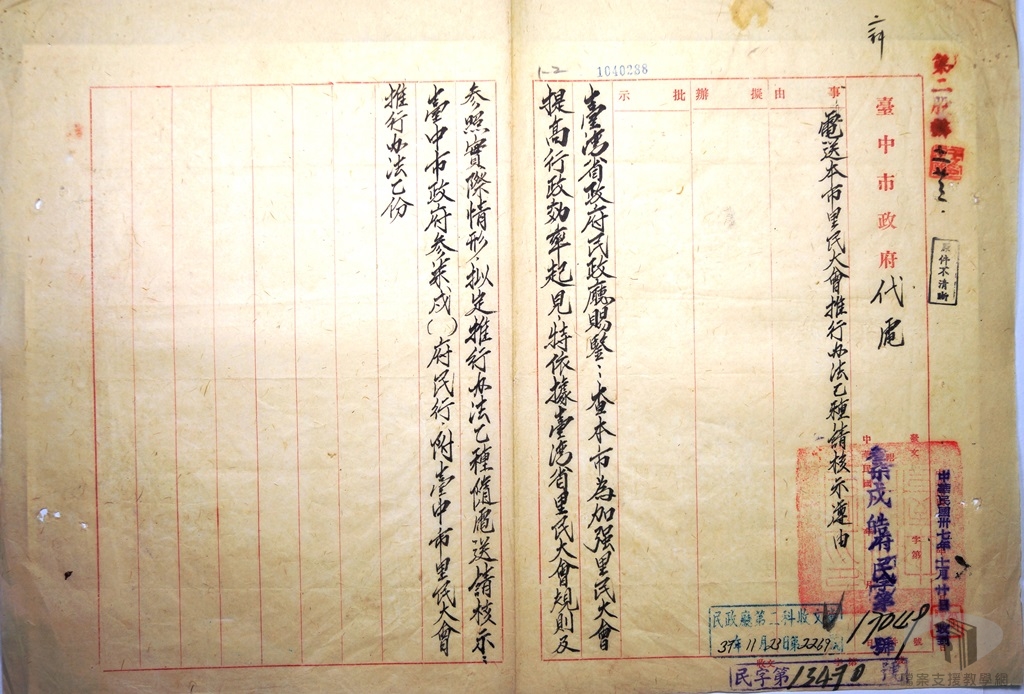 第二
臺中市政府代電
二科
原件不清晰
事由
擬辦
批示
電送本市里民大會推行办法乙種請核示遵由
1040288
1-2
臺湾省政府民政廳賜鑒：查本市為加强里民大會
提高行政効率起見，特依據臺湾省里民大會規則及
參照實際情形，拟定推行办法乙種隨電送請核示：
臺中市政府參柒戍（）府民行，附臺中市里民大會
推行办法乙份
中華民國卅七年十一月廿日
發文
字第
號
17049
民政廳第二科收文
37年11月23日第2269號
民字第13470號
檔案支援教學網